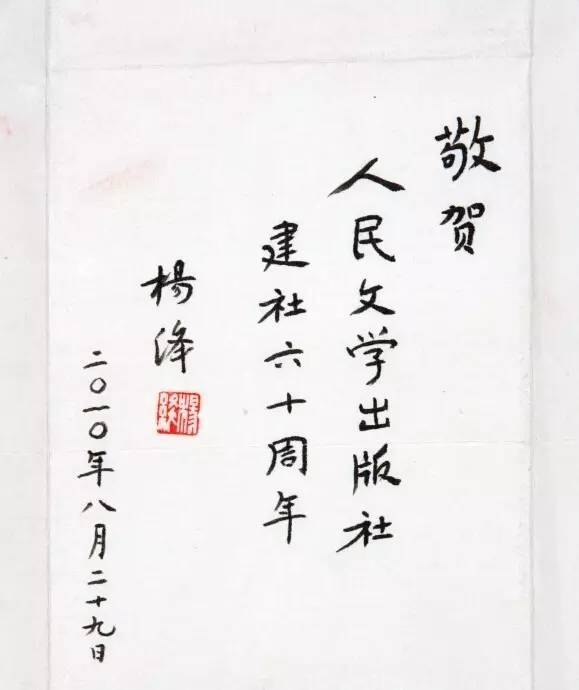 敬贺
人民文学出版社
建社六十周年
楊绛
二〇一〇年八月二十九日